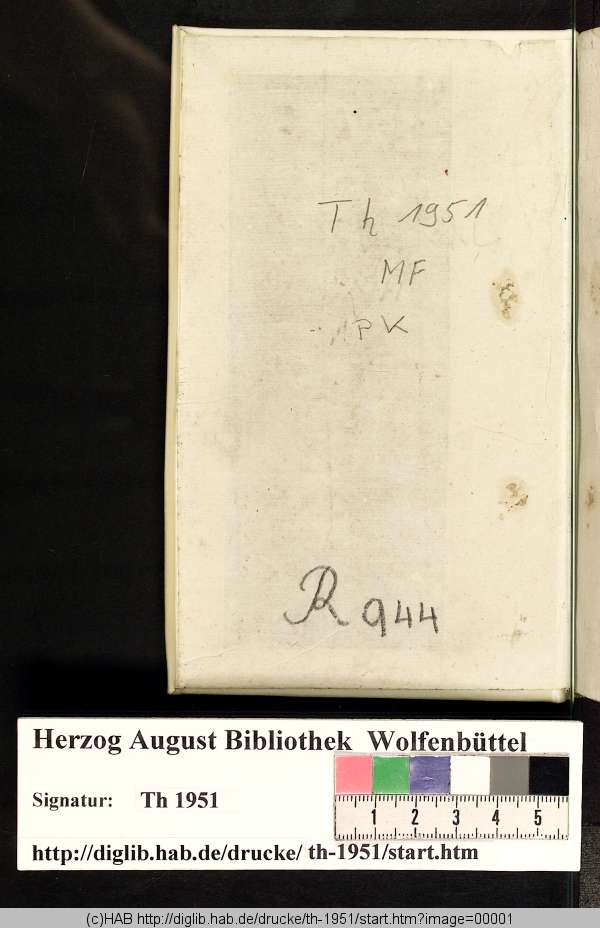 Th 1951
MF
PK
R 944
Herzog August Bibliothek Wolfenbüttel
Signatur: Th 1951
1 2 3 4 5
http://diglib.hab.de/drucke/ th-1951/start.htm
(c)HAB http://diglib.hab.de/drucke/th-1951/start.htm?image=00001